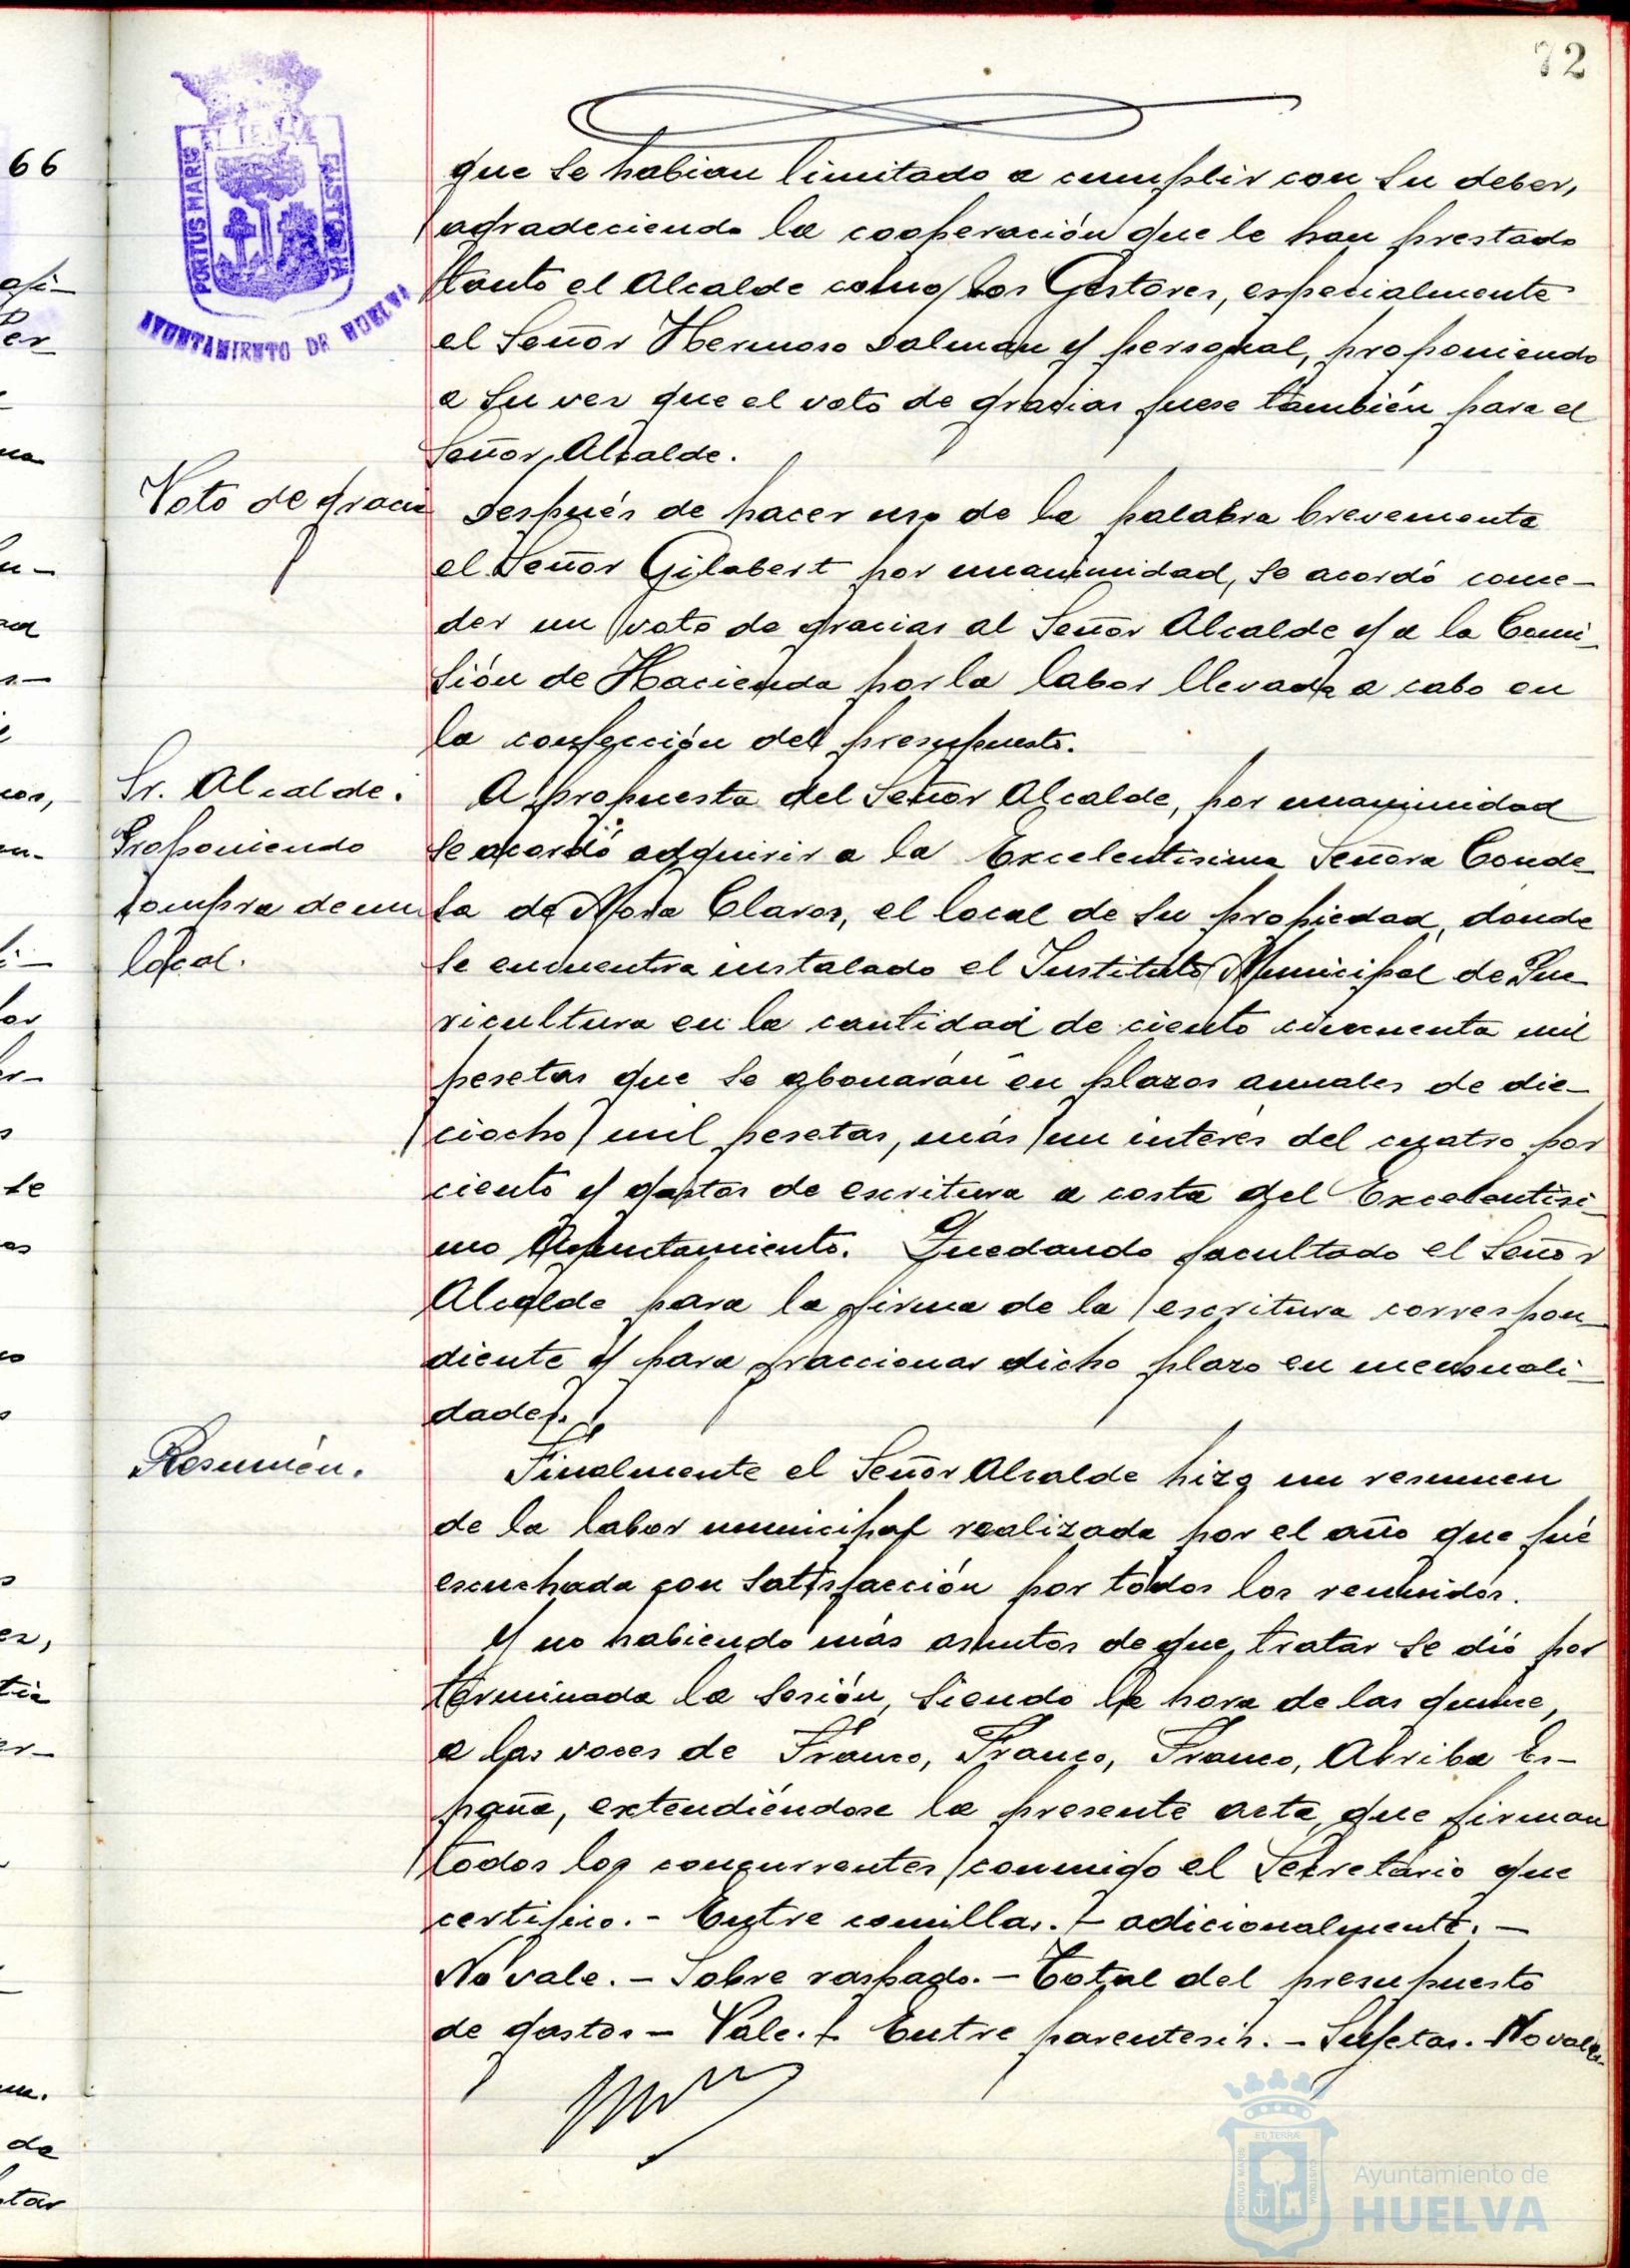 72
66
PORTUS MARIS ET TERRAE CUSTODIA
AYUNTAMIENTO DE HUELVA
que se habian limitado a cumplir con su deber,
agradeciendo la cooperación que le han prestado
tanto el Alcalde como los Gestores, especialmente
el Señor Hermoso Dalman y personal, proponiendo
a su vez que el voto de gracias fuese también para el
Señor Alcalde.
Voto de graci
Después de hacer uso de la palabra brevemente
el Señor Gilabert por unanimidad, se acordó conce-
der un voto de gracias al Señor Alcalde y a la Comi-
sión de Hacienda por la labor llevada a cabo en
la confección del presupuesto.
Sr. Alcalde.
Proponiendo
compra de un
local.
A propuesta del Señor Alcalde, por unanimidad
se acordó adquirir a la Excelentisima Señora Conde-
sa de Mora Claros, el local de su propiedad, donde
se encuentra instalado el Instituto Municipal de Pue-
ricultura en la cantidad de ciento cincuenta mil
pesetas que se abonarán en plazos anuales de die-
ciocho mil pesetas, más un interés del cuatro por
ciento y gastos de escritura a costa del Excelentisi-
mo Ayuntamiento. Quedando facultado el Señor
Alcalde para la firma de la escritura correspon-
diente y para fraccionar dicho plazo en mensuali-
dades.
Resumén.
Finalmente el Señor Alcalde hizo un resumen
de la labor municipal realizada por el año que fué
escuchada con satisfacción por todos los reunidos.
Y no habiendo más asuntos de que tratar se dió por
terminada la sesión, siendo la hora de las quince,
a las voces de Franco, Franco, Franco, Arriba Es-
paña, extendiéndose la presente acta, que firman
todos los concurrentes conmigo el Secretario que
certifico. - Entre comillas. - adicionalmente. -
No vale. - Sobre raspado. - Total del presupuesto
de gastos - Vale. - Entre parentesis. - Sujetas. No vale.
ET TERRA
PORTUS MARIS
CUSTODIA
Ayuntamiento de
HUELVA